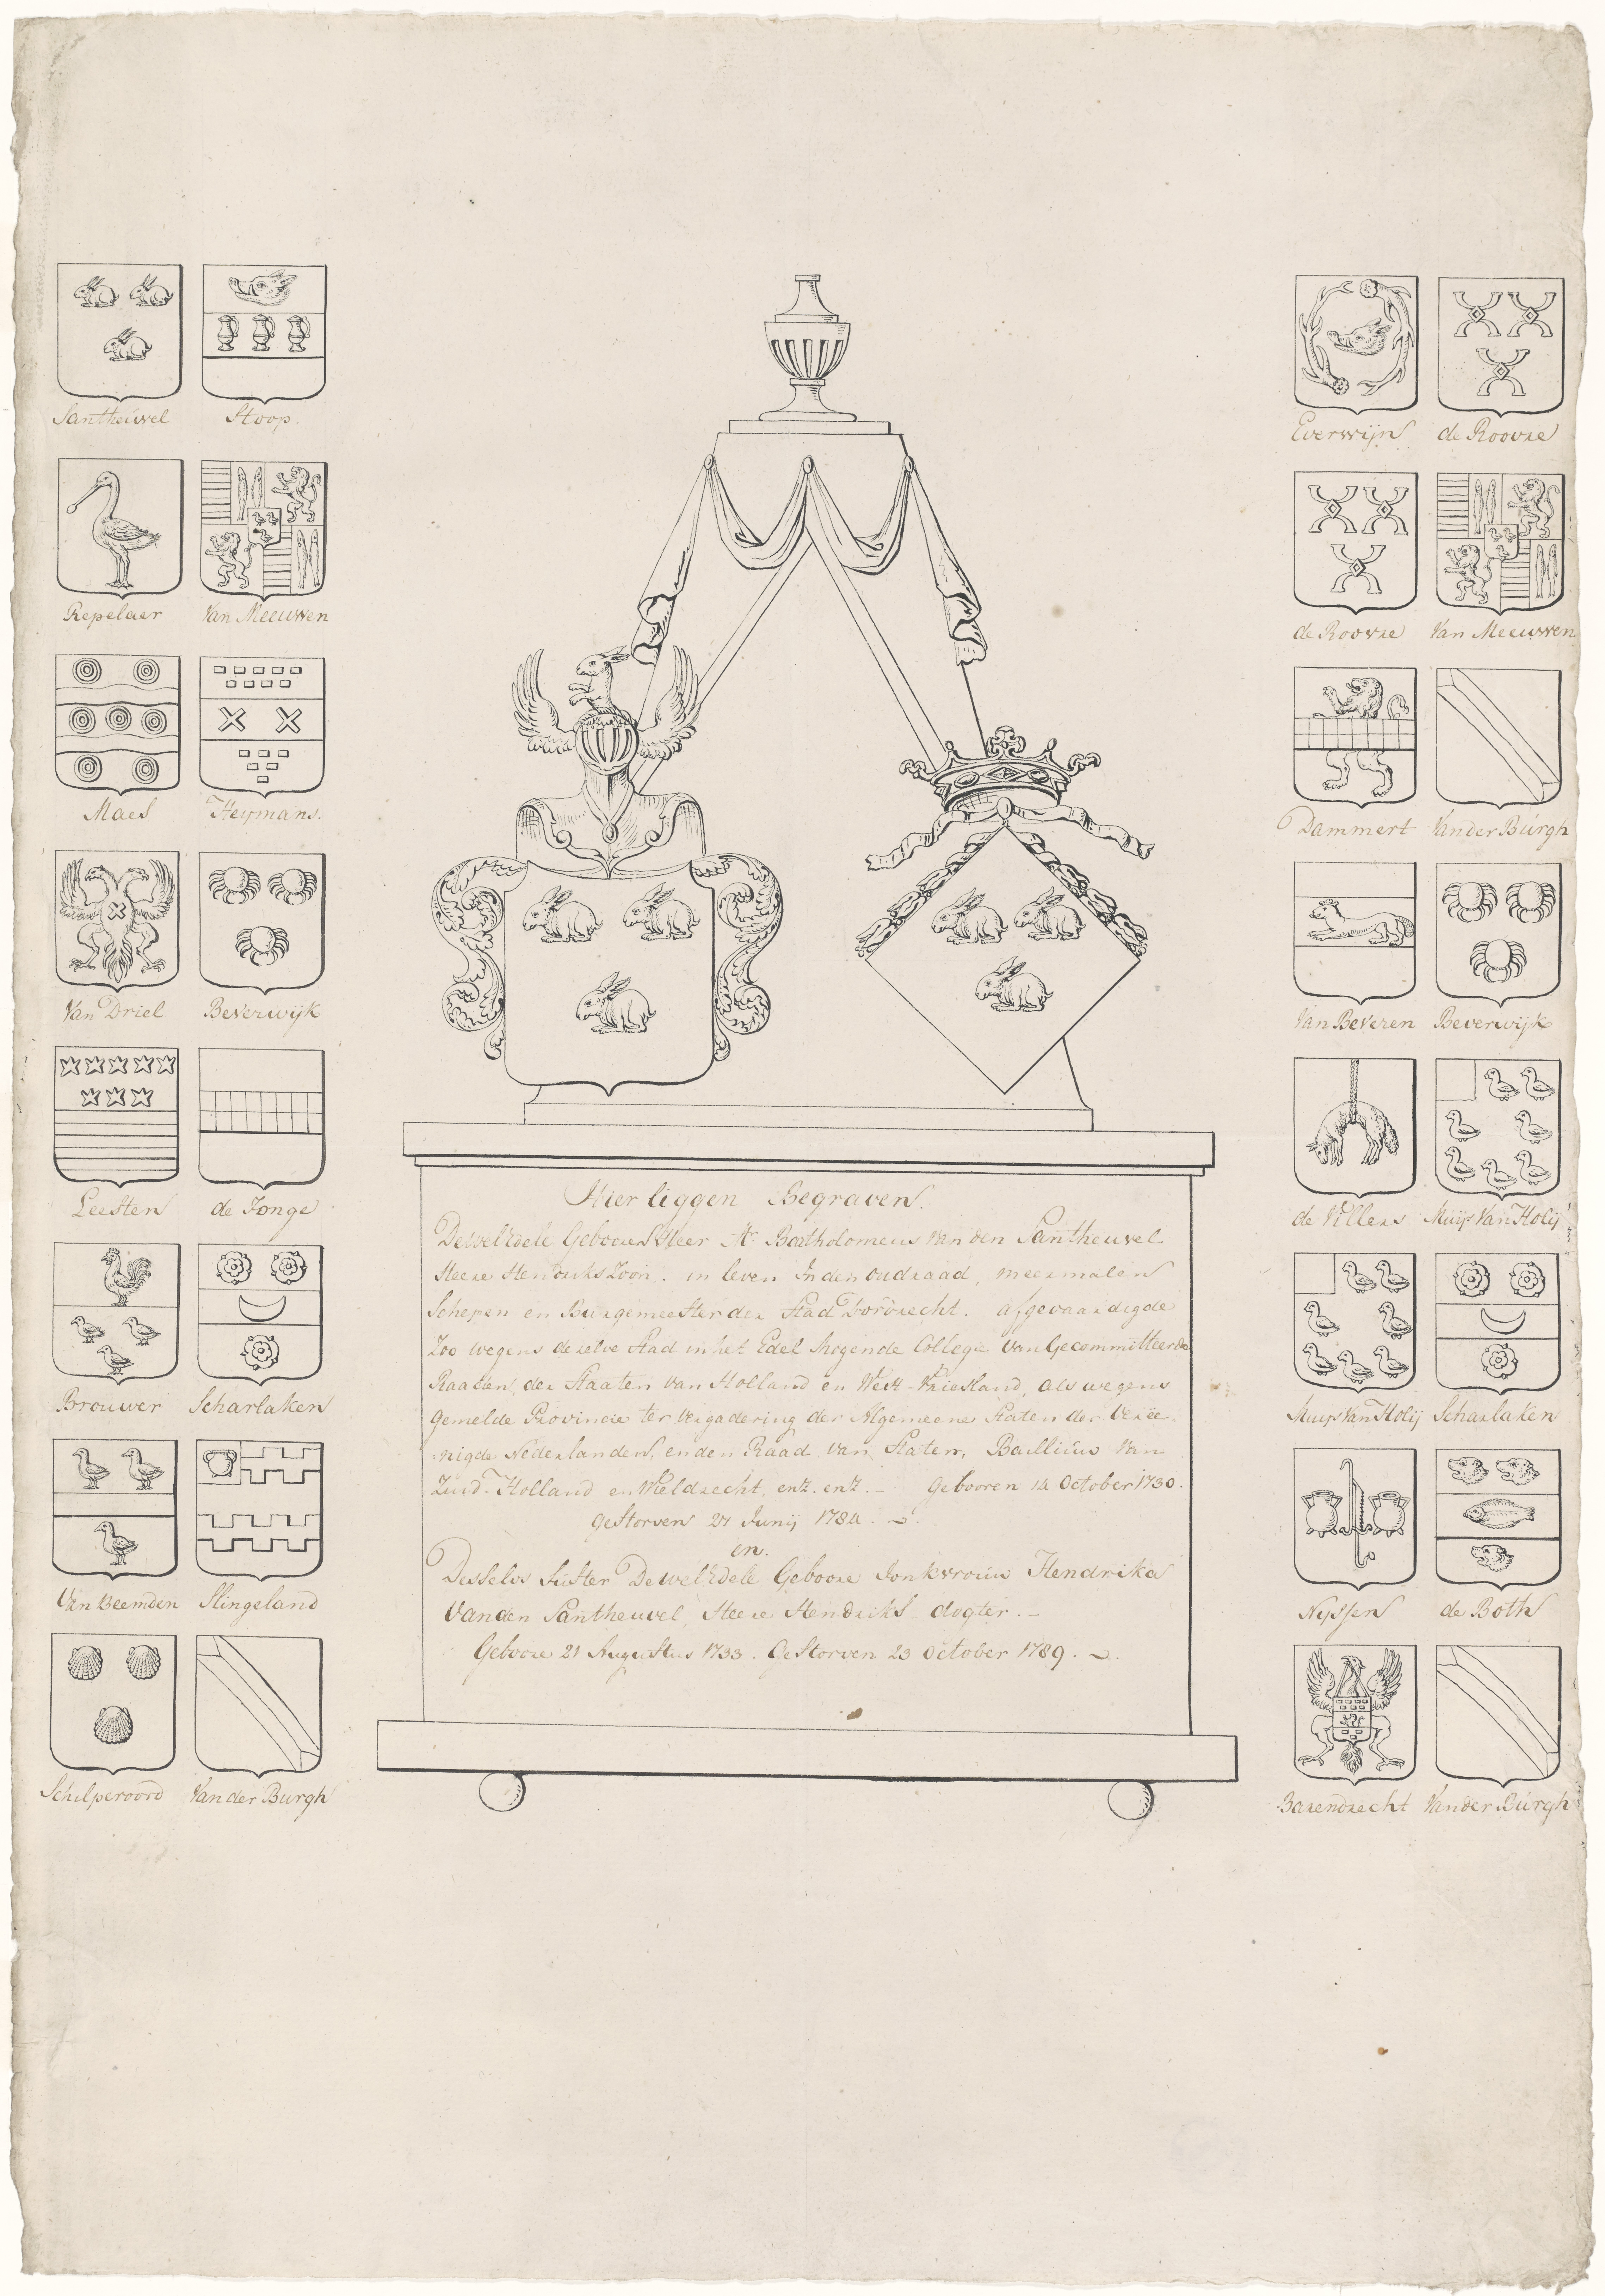 Santheuvel Stoop.
Repelaer Van Meeuwen
Maes Heymans.
Van Driel Beverwijk
Leesten de Jonge
Brouwer Scharlaken
Van Beemden Slingeland
Schilperoord Van der Burgh
Hier liggen Begraven.
Deweledele Gebooren Heer Mr. Bartholomeus Van den Santheuvel
Heere Hendriks Zoon. in leven In den oudraad, meermalen
Schepen en Burgemeester der Stad Dordrecht. afgevaardigde
Zoo wegens dezelve Stad in het Edel Mogende Collegie Van Gecommitteerde
Raaden, der Staaten Van Holland en West-Vriesland, als wegens
gemelde Provincie ter Vergadering der Algemeene Staten der Veree-
nigde Nederlanden, en den Raad Van Staten, Bailliuw Van
Zuid-Holland en Wieldrecht, entz. entz. Gebooren 14 October 1730.
Gestorven 27 Junij 1784.
en.
Desselvs Suster Dewel Edele Geboore Jonkvrouw Hendrika
Van den Santheuvel, Heere Hendriks dogter.
Geboore 21 Augustus 1733. Gestorven 23 October 1789.
Everwijn de Roovre
de Roovre Van Meeuwen
Dammert Van der Burgh
Van Beveren Beverwijk
de Villers Muijs Van Holij
Muijs Van Holij Scharlaken
Nijssen de Both
Barendrecht Van der Burgh